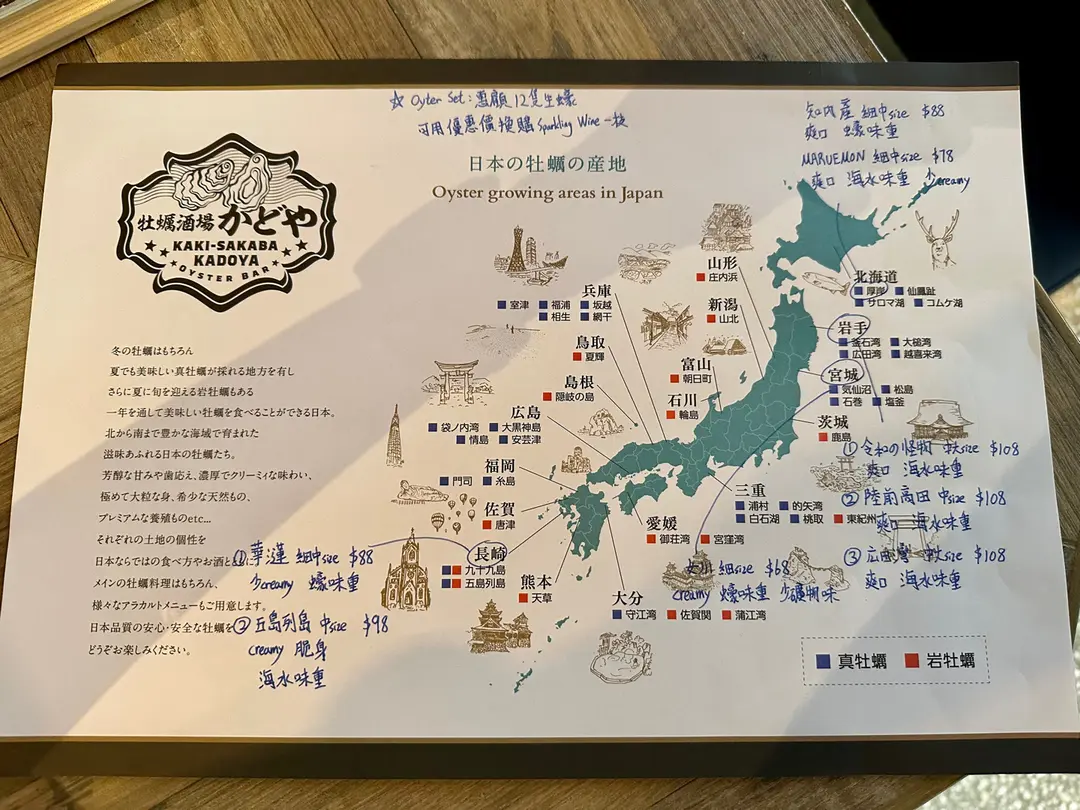 ☆ Oyster Set : 惠顧12隻生蠔
可用優惠價換購 Sparkling Wine 一枝
知内產 細中size $88
爽口 蠔味重
MARUEMON 細中size $78
爽口 海水味重 少creamy
日本の牡蠣の産地
Oyster growing areas in Japan
牡蠣酒場 かどや
KAKI-SAKABA
KADOYA
OYSTER BAR
冬の牡蠣はもちろん
夏でも美味しい真牡蠣が採れる地方を有し
さらに夏に旬を迎える岩牡蠣もある
一年を通して美味しい牡蠣を食べることができる日本。
北から南まで豊かな海域で育まれた
滋味あふれる日本の牡蠣たち。
芳醇な甘みや歯応え、濃厚でクリーミィな味わい、
極めて大粒な身、希少な天然もの、
プレミアムな養殖ものetc...
それぞれの土地の個性を
日本ならではの食べ方やお酒と
メインの牡蠣料理はもちろん、
様々なアラカルトメニューもご用意します。
日本品質の安心・安全な牡蠣を
どうぞお楽しみください。
① 華蓮 細中size $88
少creamy 蠔味重
② 五島列島 中size $98
creamy 脆身
海水味重
兵庫
室津 福浦 坂越
相生 網干
鳥取
夏輝
島根
隠岐の島
広島
袋ノ内湾 大黒神島
情島 安芸津
福岡
門司 糸島
佐賀
唐津
長崎
九十九島
五島列島
熊本
天草
大分
守江湾 佐賀関 蒲江湾
愛媛
御荘湾 宮窪湾
三重
浦村 的矢湾
白石湖 桃取 東紀州
山形
庄内浜
新潟
山北
富山
朝日町
石川
輪島
北海道
厚岸 仙鳳趾
サロマ湖 コムケ湖
岩手
釜石湾 大槌湾
広田湾 越喜来湾
宮城
気仙沼 松島
石巻 塩釜
茨城
鹿島
① 令和の怪物 size $108
爽口 海水味重
② 陸前高田 中size $108
爽口 海水味重
③ 広田灣 size $108
爽口 海水味重
女川 細size $68
creamy 蠔味重 少礦物味
真牡蠣 岩牡蠣